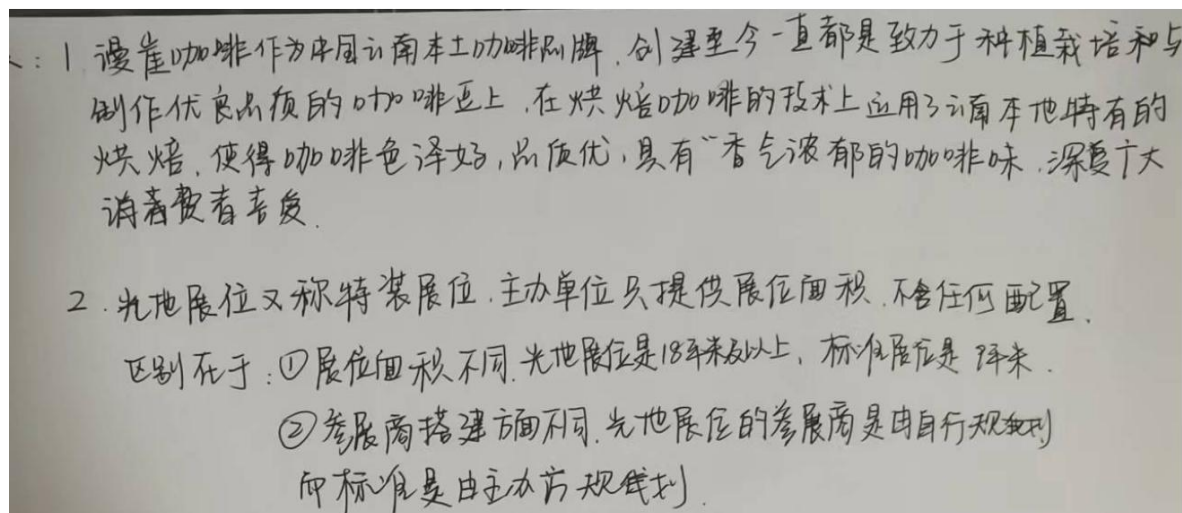 ：1 漫崖咖啡作为中国云南本土咖啡品牌，创建至今一直都是致力于种植栽培和与
制作优良品质的咖啡豆上，在烘焙咖啡的技术上运用了云南本地特有的
烘焙，使得咖啡色泽好，品质优，具有“香气浓郁的咖啡味，深受广大
消费者喜爱.
2.光地展位又称特装展位.主办单位只提供展位面积.不含任何配置.
区别在于：①展位面积不同.光地展位是18平米及以上，标准展位是9平米.
②参展商搭建方面不同.光地展位的参展商是由自行规划
而标准是由主办方规划.